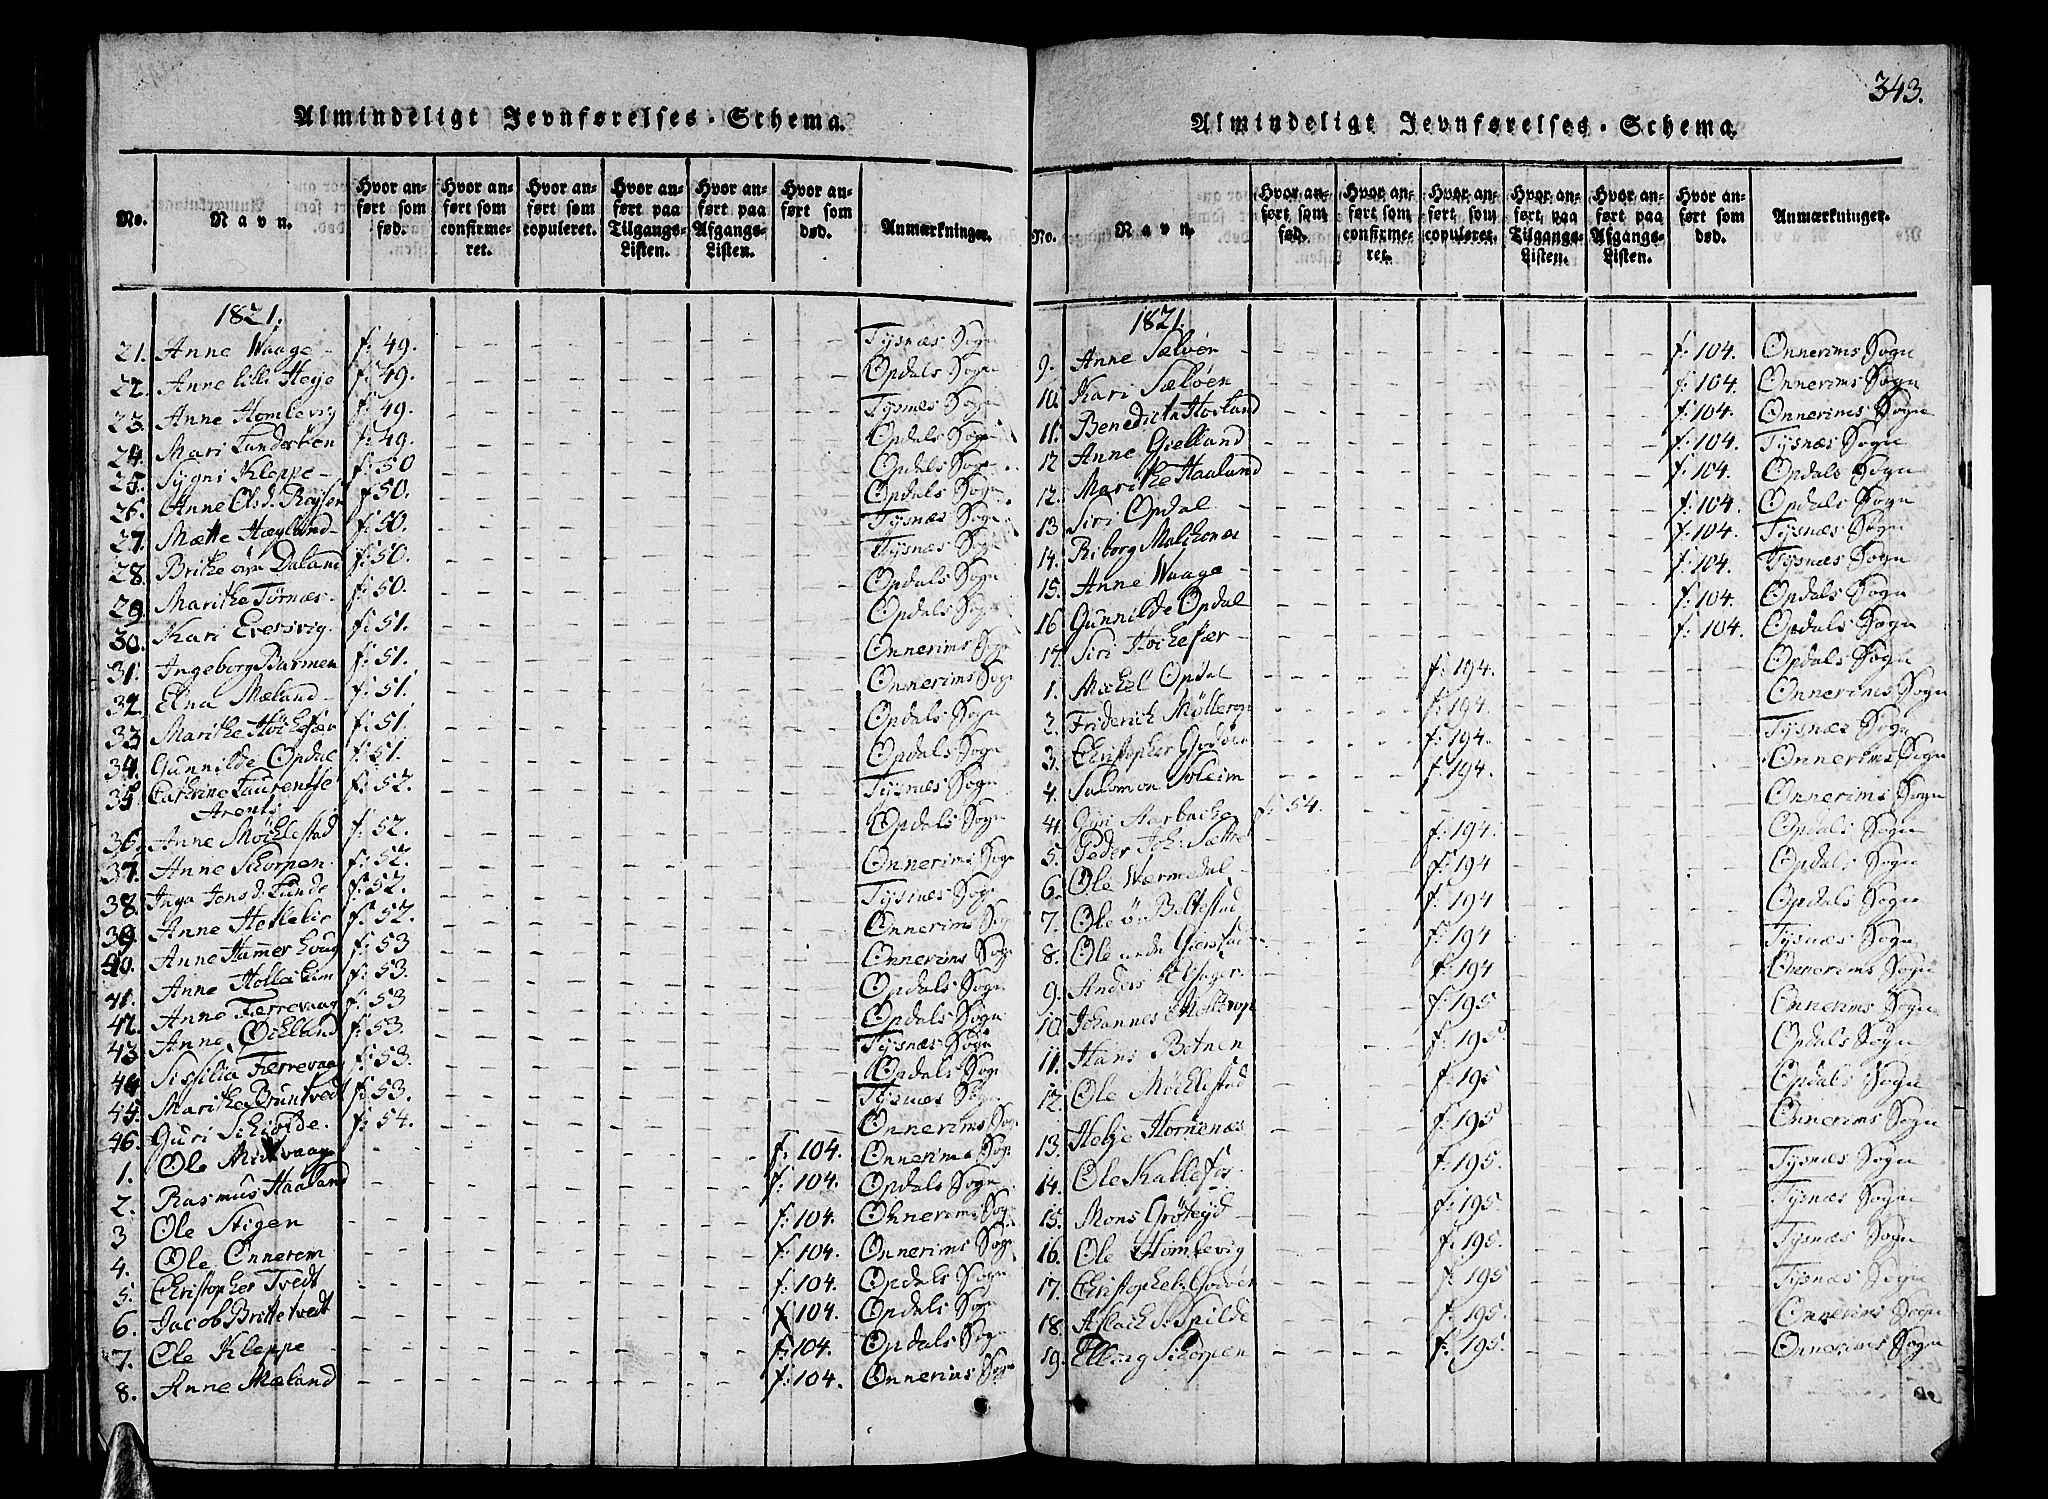 343.
Almindeligt Jevnførelses-Schema.
No. Navn. Hvor anført som fød. Hvor anført som confirmeret. Hvor anført som copuleret. Hvor anført paa Tilgangs-Listen. Hvor anført paa Afgangs-Listen. Hvor anført som død. Anmærkninger.
1821.
21. Anne Waage f: 49. Tysnæs Sogn
22. Anne lilli Heye f: 49. Opdals Sogn
23. Anne Homlevig f: 49. Tysnæs Sogn
24. Mari Lunderöen f: 49. Opdals Sogn
25. Sygni Kleppe f: 50 Opdals Sogn
26. Anne Olsd. f: 50. Opdals Sogn
27. Mætte Høylund f: 50. Tysnæs Sogn
28. Brithe øvn Daland f: 50. Tysnæs Sogn
29. Marithe Tørnæs f: 50. Opdals Sogn
30. Kari Eversvig. f: 51. Opdals Sogn
31. Ingeborg Barmen f: 51. Onnerims Sogn
32. Elna Mæland f: 51. Onnerims Sogn
33 Marithe Höchefær f: 51. Opdals Sogn
34. Gunnilde Opdal f: 51. Opdals Sogn
35 Cathrine Laurentse f: 52. Tysnæs Sogn
Arents
36. Anne Möchlestad f: 52. Opdals Sogn
37. Anne Skorpen f: 52. Onnerims Sogn
38. Inga Jensd: Lunde f: 52. Tysnæs Sogn
39 Anne Hetlelie f: 52. Onnerims Sogn
40. Anne Hammerhoug f: 53 Onnerims Sogn
41. Anne f: 53. Opdals Sogn
42. Anne Færrevaag f: 53 Opdals Sogn
43. Anne Öchland f: 53. Tysnæs Sogn
44 Sissilia Færrevaag f: 53. Opdals Sogn
45. Marithe Bruntvedt f: 53. Tysnæs Sogn
46. Guri Schiorde. f: 54. Onnerims Sogn
1. Ole Midtvaage f: 104. Onnerims Sogn
2. Rasmus Haaland f: 104. Opdals Sogn
3 Ole Stigen f: 104. Onnerims Sogn
4. Ole Onnerem f: 104. Onnerims Sogn
5. Christopher Tvedt f: 104. Opdals Sogn
6. Jacob Brittetvedt f: 104. Opdals Sogn
7. Ole Kleppe f: 104. Opdals Sogn
8. Anne Mæland f: 104. Onnerims Sogn
Almindeligt Jevnførelses-Schema.
No. Navn. Hvor anført som fød. Hvor anført som confirmeret. Hvor anført som copuleret. Hvor anført paa Tilgangs-Listen. Hvor anført paa Afgangs-Listen. Hvor anført som død. Anmærkninger.
1821.
9. Anne Sælöen f: 104. Onnerims Sogn
10. Kari Sælöen f: 104. Onnerims Sogn
11. Benedicta Hovland f: 104. Onnerims Sogn
12 Anne Gielland f: 104. Tysnæs Sogn
12. Marithe Haaland f: 104. Opdals Sogn
13 Siri Opdal f: 104. Opdals Sogn
14. Riborg Malchenæs f: 104. Tysnæs Sogn
15. Anne Waage f: 104. Tysnæs Sogn
16 Gunnilde Opdal f: 104. Opdals Sogn
17. Siri Hochefær f: 104. Opdals Sogn
1. Michel Opdal f: 194. Opdals Sogn
2. Friderich Møllerop f: 194. Onnerims Sogn
3. Christopher Godöen f: 194. Tysnæs Sogn
4. Salomon Soleim f: 194. Onnerims Sogn
4. Guri Aarbache f: 54. Onnerims Sogn
5. Peder Joh: Sætre f: 194. Opdals Sogn
6. Ole Wærmedal f: 194 Opdals Sogn
7. Ole ön Beltestad f: 194 Opdals Sogn
8. Ole nedn Gierstad f: 194 Tysnæs Sogn
9. Anders f: 194 Onnerims Sogn
10. Johannes Møllerop f: 195 Onnerims Sogn
11. Hans Betnen f: 195. Opdals Sogn
12. Ole Möchlestad f: 195 Opdals Sogn
13. Helje Hornenæs f: 195 Onnerims Sogn
14. Ole Kallefos f: 195. Tysnæs Sogn
15. Mons Gröteyd f: 195. Tysnæs Sogn
16. Ole Homlevig f: 195. Tysnæs Sogn
17. Christopher Godöen f: 195 Tysnæs Sogn
18. Aslach Spilde f: 195. Onnerims Sogn
19. Elling Skorpen f: 195. Onnerims Sogn